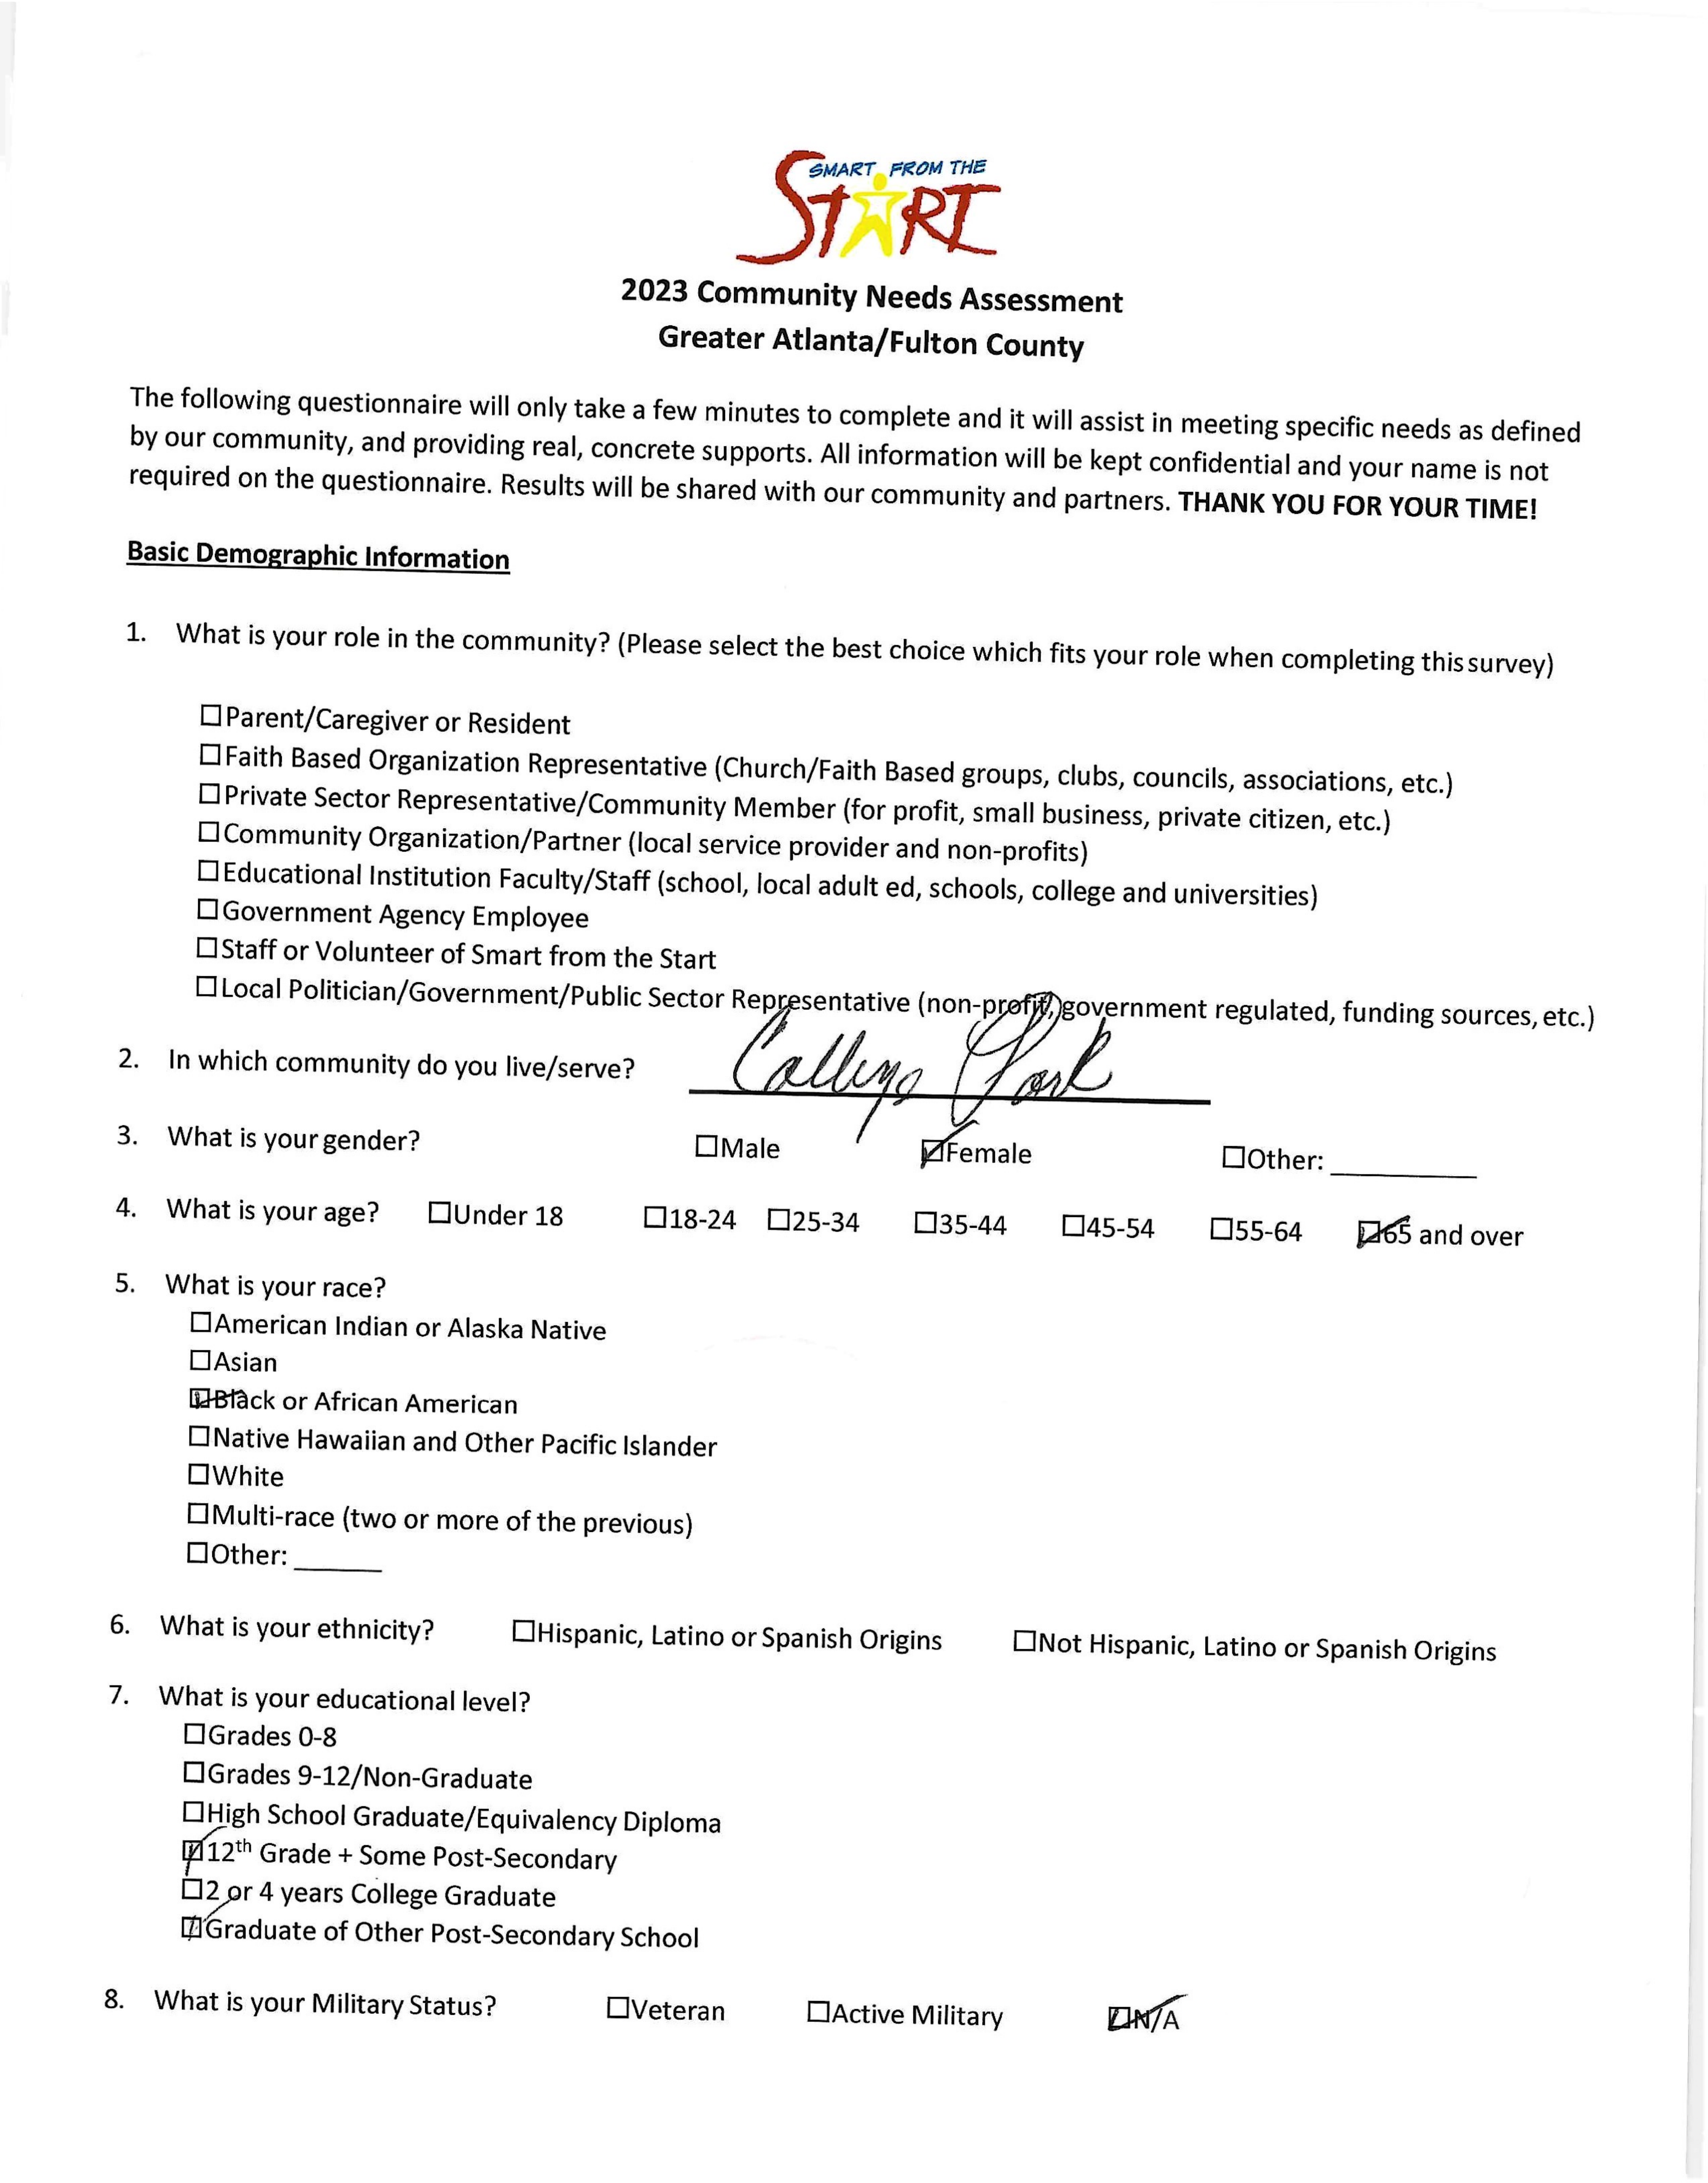 SMART FROM THE
START
2023 Community Needs Assessment
Greater Atlanta/Fulton County
The following questionnaire will only take a few minutes to complete and it will assist in meeting specific needs as defined
by our community, and providing real, concrete supports. All information will be kept confidential and your name is not
required on the questionnaire. Results will be shared with our community and partners. THANK YOU FOR YOUR TIME!
Basic Demographic Information
1. What is your role in the community? (Please select the best choice which fits your role when completing this survey)
☐Parent/Caregiver or Resident
☐Faith Based Organization Representative (Church/Faith Based groups, clubs, councils, associations, etc.)
☐Private Sector Representative/Community Member (for profit, small business, private citizen, etc.)
☐Community Organization/Partner (local service provider and non-profits)
☐Educational Institution Faculty/Staff (school, local adult ed, schools, college and universities)
☐Government Agency Employee
☐Staff or Volunteer of Smart from the Start
☐Local Politician/Government/Public Sector Representative (non-profit, government regulated, funding sources, etc.)
2. In which community do you live/serve? College Park
3. What is your gender? ☐Male ☑Female ☐Other: ______
4. What is your age? ☐Under 18 ☐18-24 ☐25-34 ☐35-44 ☐45-54 ☐55-64 ☑65 and over
5. What is your race?
☐American Indian or Alaska Native
☐Asian
☑Black or African American
☐Native Hawaiian and Other Pacific Islander
☐White
☐Multi-race (two or more of the previous)
☐Other: ______
6. What is your ethnicity? ☐Hispanic, Latino or Spanish Origins ☐Not Hispanic, Latino or Spanish Origins
7. What is your educational level?
☐Grades 0-8
☐Grades 9-12/Non-Graduate
☐High School Graduate/Equivalency Diploma
☑12th Grade + Some Post-Secondary
☐2 or 4 years College Graduate
☑Graduate of Other Post-Secondary School
8. What is your Military Status? ☐Veteran ☐Active Military ☑N/A